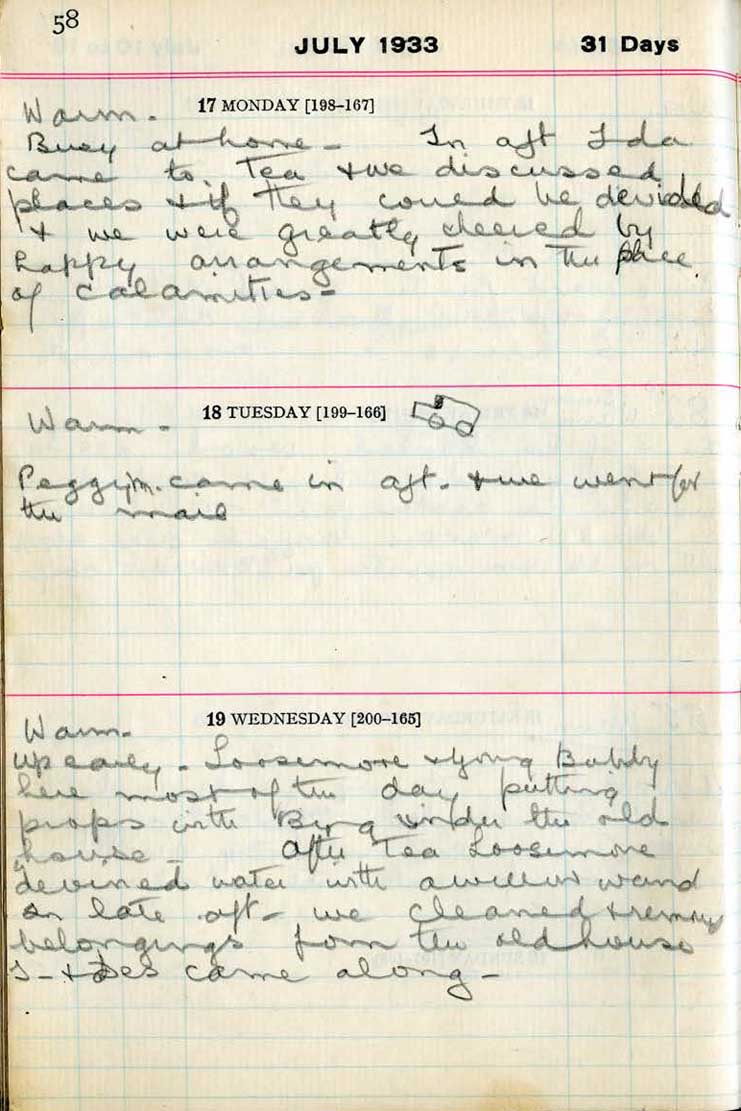 58
JULY 1933 31 Days
17 MONDAY [198-167]
Warm.
Busy at home - In aft Ida
came to Tea + we discussed
places + if they could be devided
+ we were greatly cheered by
happy arrangements in the place
of calamities -
18 TUESDAY [199-166]
Warm -
Peggy m. came in aft. + we went for
the mail
19 WEDNESDAY [200-165]
Warm.
Up early - Loosemore + young Bubby
here most of the day putting
props with Byng under the old
house - After Tea Loosemore
devined water with a willow wand
in late aft - we cleaned + removed
belongings from the old house
I - + Des came along -